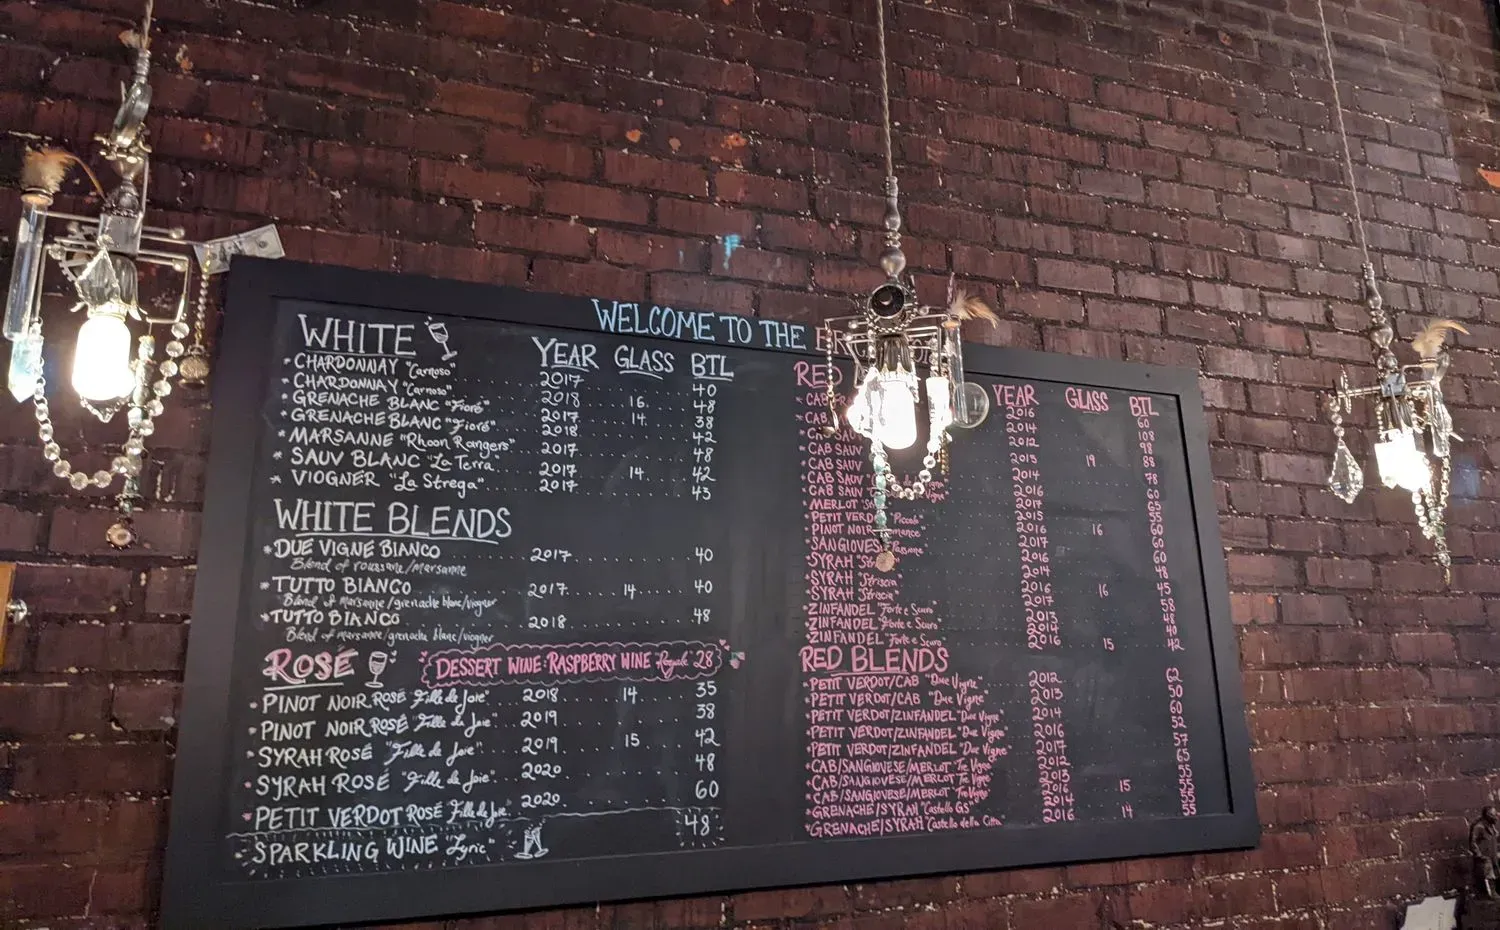 WELCOME TO THE
WHITE YEAR GLASS BTL
* CHARDONNAY "Carnoso" 2017 40
* CHARDONNAY "Carnoso" 2018 16 48
* GRENACHE BLANC "Fioré" 2017 14 38
* GRENACHE BLANC "Fioré" 2018 42
* MARSANNE "Rhoon Rangers" 48
* SAUV BLANC "La Terra 2017 14 42
* VIOGNER "La Strega" 2017 43
WHITE BLENDS
* DUE VIGNE BIANCO 2017 40
Blend of roussane/marsanne
* TUTTO BIANCO 2017 14 40
Blend of marsanne/grenache blanc/viogner
* TUTTO BIANCO 2018 48
Blend of marsanne/grenache blanc/viogner
ROSÉ
DESSERT WINE: RASPBERRY WINE 28
* PINOT NOIR ROSÉ "Fille de Joie" 2018 14 35
* PINOT NOIR ROSÉ "Fille de Joie" 2019 38
* SYRAH ROSÉ "Fille de Joie" 2019 15 42
* SYRAH ROSÉ "Fille de Joie" 2020 48
PETIT VERDOT ROSÉ Fille de Joie 2020 60
* SPARKLING WINE "Lyric" 48
RED YEAR GLASS BTL
* CAB 2016 60
* CAB 2014 108
* CAB SAUV 2012 98
* CAB SAUV 2013 19 88
* CAB SAUV 2014 78
* CAB SAUV 2016 60
* MERLOT 2017 65
* PETIT VERDOT "Piccolo" 2015 55
* PINOT NOIR 2016 16 60
* SANGIOVESE "Passione" 2017 60
* SYRAH 2016 60
* SYRAH "Striscia" 2014 48
* SYRAH "Striscia" 2016 16 45
* ZINFANDEL "Forte e Scuro" 2017 58
* ZINFANDEL "Forte e Scuro 48
* ZINFANDEL "Forte e Scuro 2014 40
2016 15 42
RED BLENDS
* PETIT VERDOT/CAB "Due Vigne" 2012 62
* PETIT VERDOT/CAB "Due Vigne" 2013 50
* PETIT VERDOT/ZINFANDEL "Due Vigne" 2014 60
* PETIT VERDOT/ZINFANDEL "Due Vigne" 2016 52
* PETIT VERDOT/ZINFANDEL "Due Vigne" 2017 57
* CAB/SANGIOVESE/MERLOT "Tre Vigne" 2012 65
* CAB/SANGIOVESE/MERLOT "Tre Vigne" 2013 55
* CAB/SANGIOVESE/MERLOT "Tre Vigne" 2016 15 55
* GRENACHE/SYRAH "Castello GS" 2014 55
* GRENACHE/SYRAH "Castello della Citta 2016 14 55